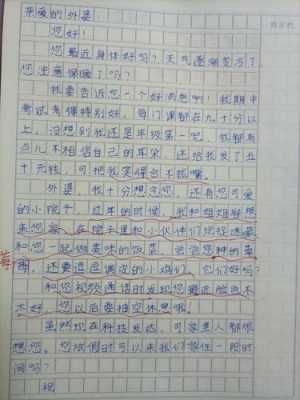 亲爱的外婆：
您好！
您最近身体好吗？天气逐渐变冷了
您注意保暖了吗？
我要告诉您一个好消息啊！我期中
考试考得特别好，每门课都在九十分以
上，没想到我还是年级第一呢，我都有
点儿不相信自己的耳朵，还给我发了五
十元钱，可把我笑得合不拢嘴。
外婆，我十分想念您，还有您可爱
的小院子，过年的时候，我和姐姐
来您家，在院子里和小伙伴们玩捉迷藏
和您一起做美味的饭菜，您种的草
莓
莓，还要逗逗调皮的小鸡们，它们好吗？
和您视频通话时发现您最近脸色不
太好，您以后要抽空休息哦。
虽然现在科技发达，可家里人都很
想您。您放假时可以来我们家住一段时
间吗？
祝